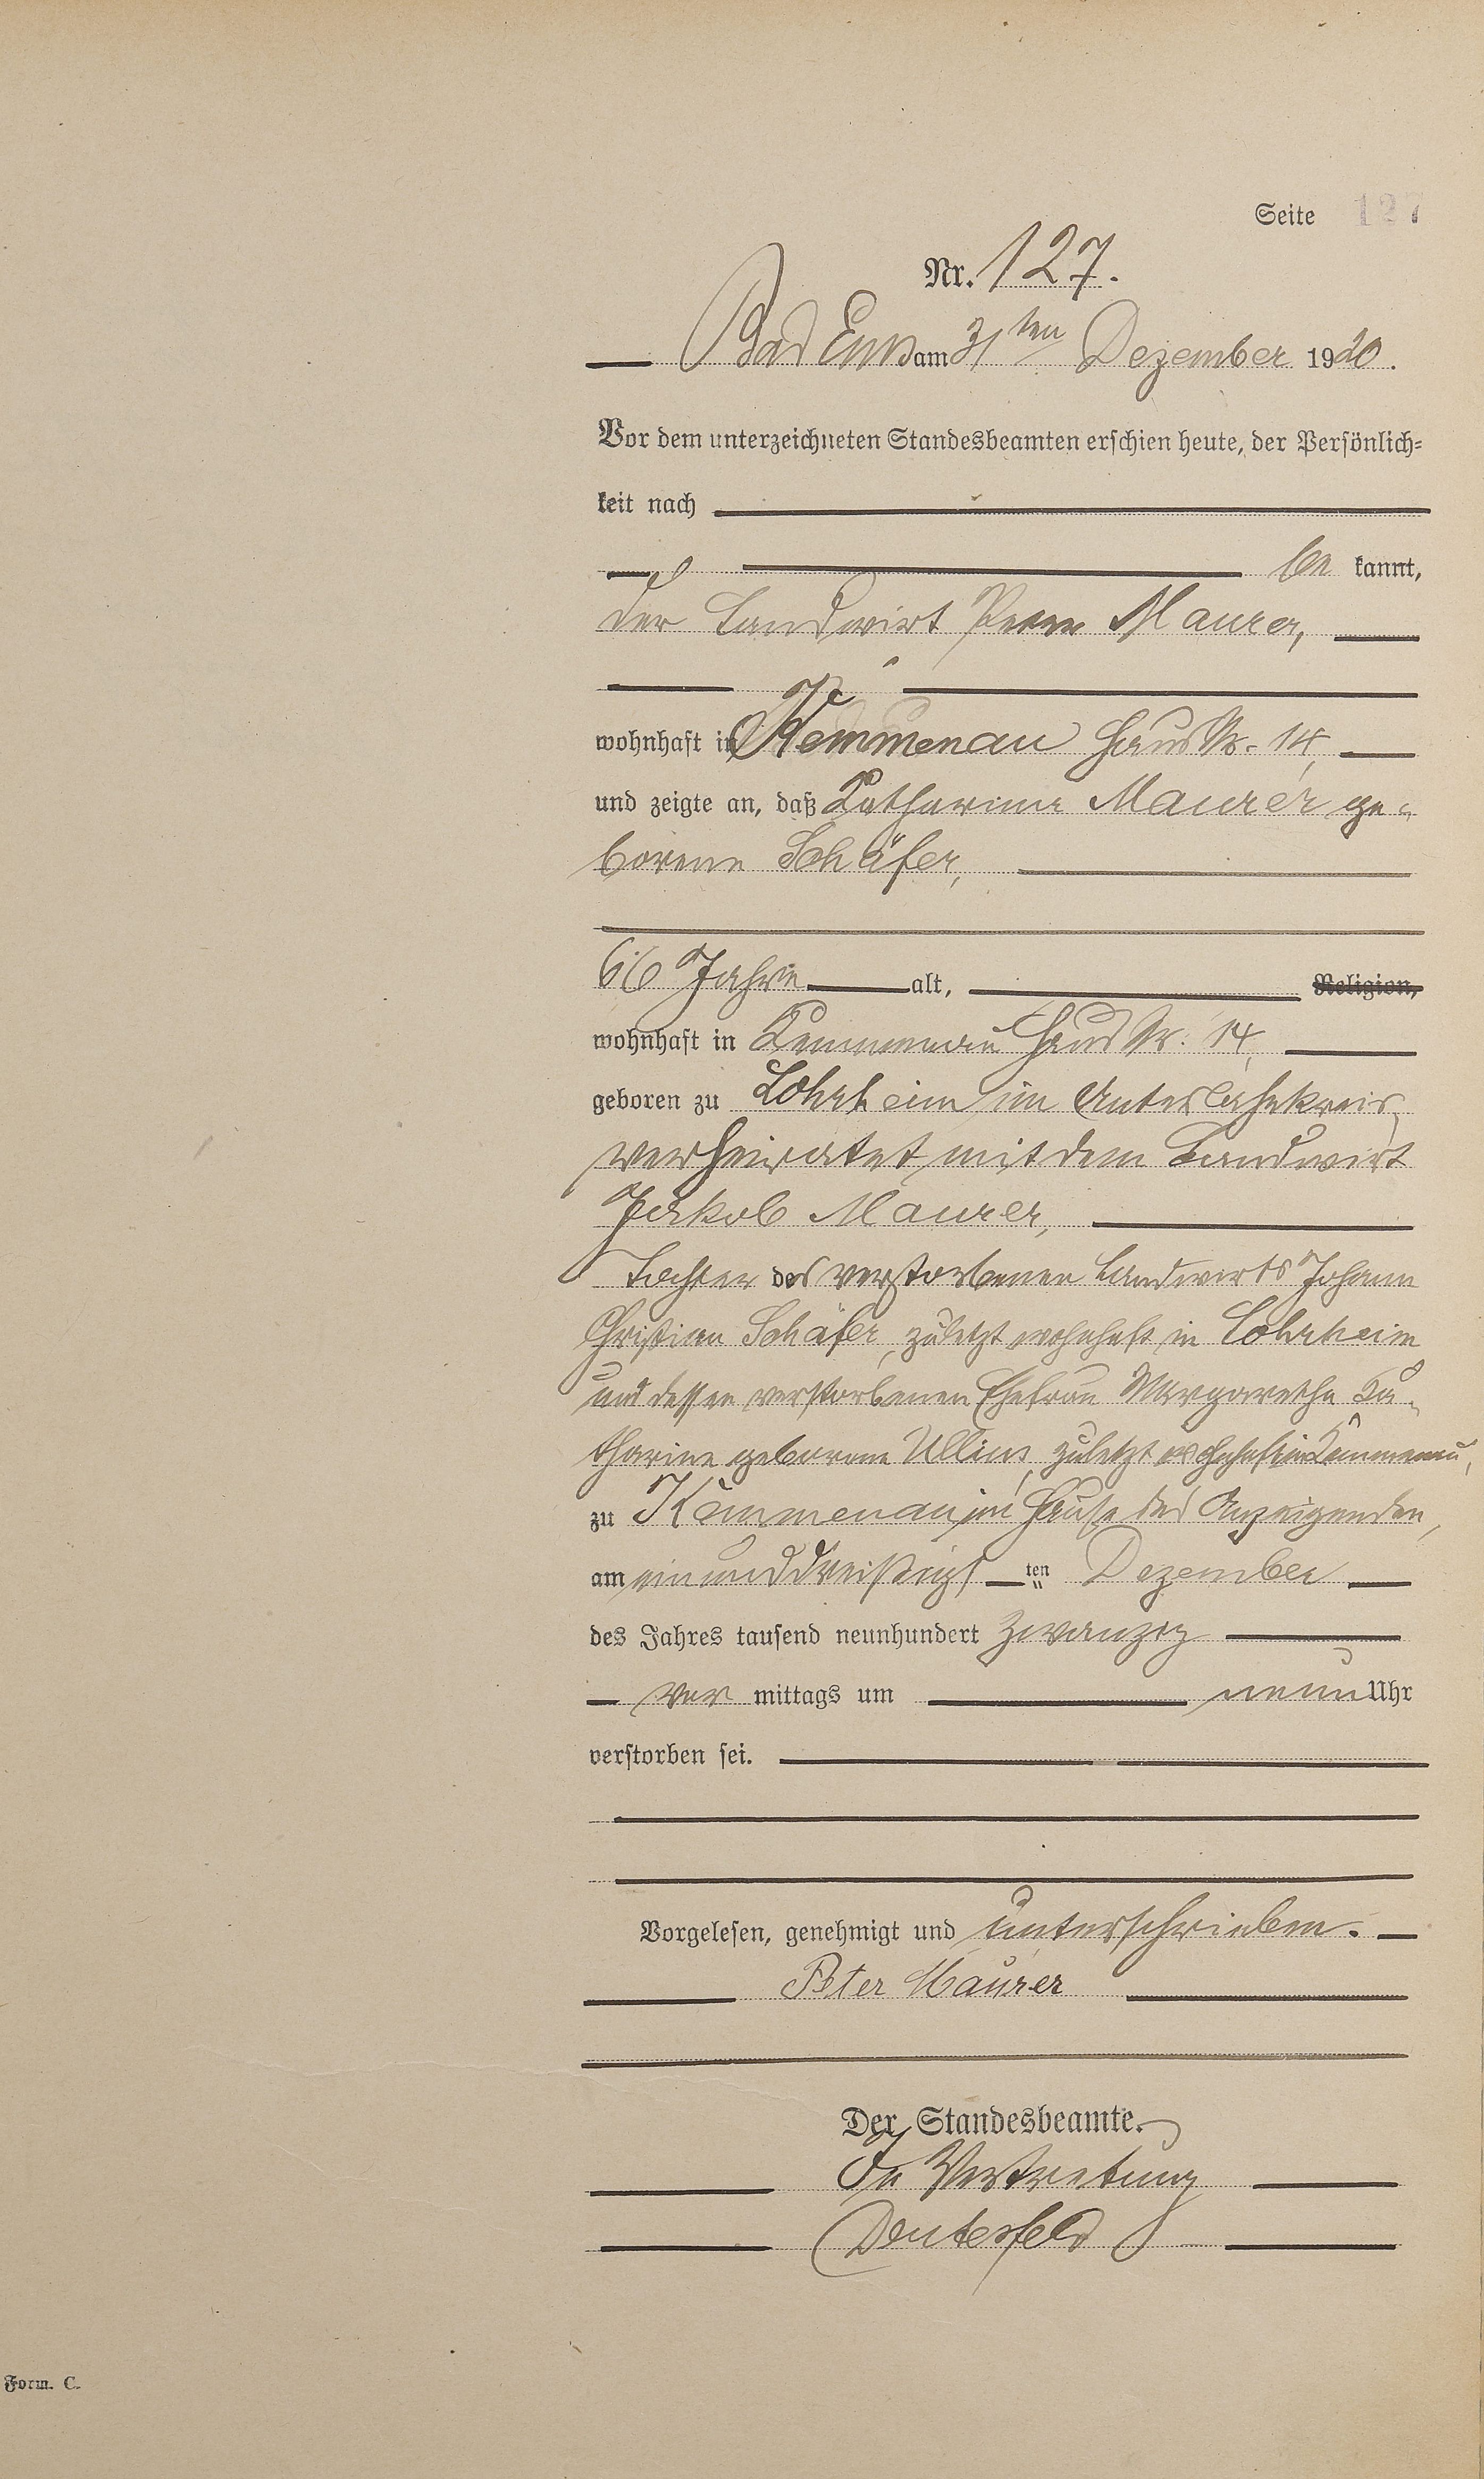 Seite 127
Nr. 127.
Bad Ems am 31ten Dezember 1920.
Vor dem unterzeichneten Standesbeamten erschien heute, der Persönlich-
keit nach
be kannt,
der Landwirt Peter Maurer,
wohnhaft in Kemmenau Haus Nr. 14,
und zeigte an, daß Katharina Maurer ge-
borene Schäfer,
66 Jahre alt, Religion,
wohnhaft in Kemmenau Haus Nr. 14,
geboren zu Lohrheim im Unterlahnkreis,
verheiratet mit dem Landwirt
Jakob Maurer,
Tochter des verstorbenen Landwirts Johann
Christian Schäfer, zuletzt wohnhaft in Lohrheim
und dessen verstorbenen Ehefrau Margarethe Ka-
tharine geborene Ullius, zuletzt wohnhaft in Kemmenau,
zu Kemmenau im Hause des Anzeigenden,
am einunddreißigs ten Dezember
des Jahres tausend neunhundert zwanzig
vor mittags um neun Uhr
verstorben sei.
Vorgelesen, genehmigt und unterschrieben.
Peter Maurer
Der Standesbeamte.
In Vertretung
Form. C.